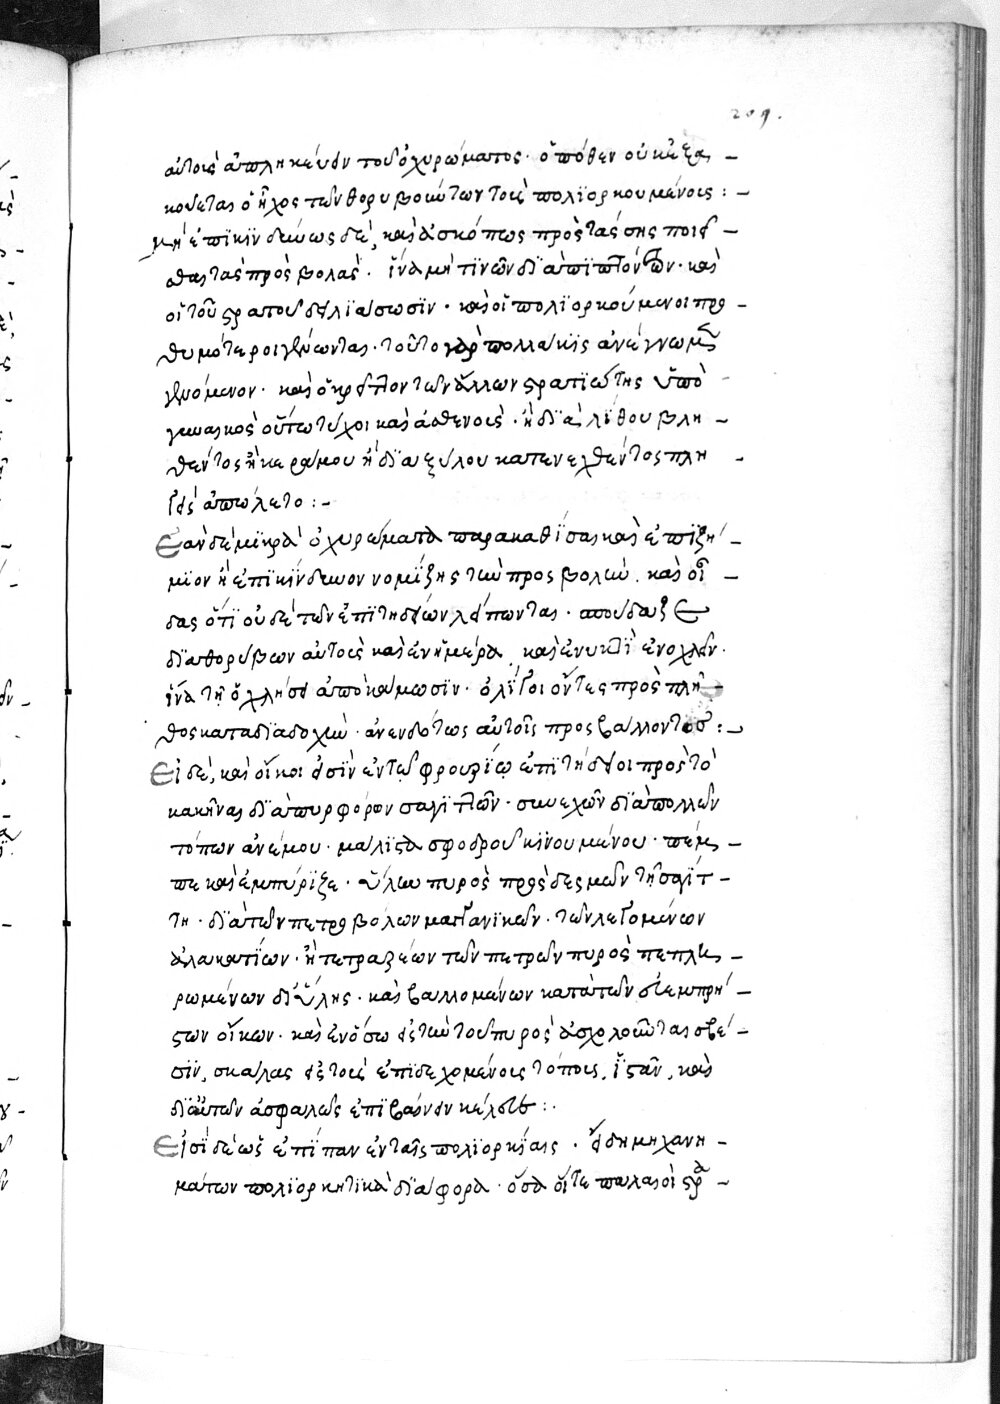 209.
αὐτοῖς ἀπληκεύειν τοῦ ὀχυρώματος· ὁπόθεν οὐκ ἐξα
κούεται ὁ ἦχος τῶν θορυβούντων τοῖς πολιορκουμένοις :
μὴ ἐπικινδύνως δὲ, καὶ ἀσκόπως πρὸς τὰς σῆς ποιεῖ
σθαι τὰς προσβολάς· ἵνα μή τινων διαπιπτόντων· καὶ
οἱ τοῦ στρατοῦ δειλιάσωσιν· καὶ οἱ πολιορκούμενοι προ
θυμότεροι γένωνται· τοῦτο γὰρ πολλάκις ἀνέγνωμεν
γενόμενον· καὶ ὁ κρείττον τῶν ἄλλων στρατιώτης ὑπὸ
γυναικὸς οὕτω τύχοι καὶ ἀσθενοῦς· ἢ διὰ λίθου βλη
θέντος ἢ κεράμου ἢ διὰ ξύλου κατενεχθέντος πλη
γεὶς ἀπώλετο :
Ἐὰν δὲ μικρὰ ὀχυρώματα παρακαθίσαι καὶ ἐπιζή
μιον ἢ ἐπικίνδυνον νομίζης τὴν προσβολὴν. καὶ οἶ
δας ὅτι οὐδὲ τῶν ἐπιτηδείων λείπονται· σπούδαζε
διὰ θορύβων αὐτοῖς καὶ ἐν ἡμέρα καὶ ἐν νυκτὶ ἐνοχλεῖν·
ἵνα τῇ ὀχλήσει ἀποκάμωσιν· ὀλίγοι ὄντες πρὸς πλῆ
θος κατὰ διαδοχὴν ἀνενδότως αὐτοῖς προσβάλλοντας :
Εἰ δὲ, καὶ οἶκοι εἰσὶν ἐν τῷ φρουρίῳ ἐπιτήδειοι πρὸς τὸ
καῆναι διὰ πυρφόρων σαγιττῶν· συνεχῶν διὰ πολλῶν
τόπων ἀνέμου· μάλιστα σφοδροῦ κινουμένου· πέμ
πε καὶ ἐμπύριζε· ὕλην πυρὸς προσδεσμῶν τῇ σαγίτ
τη· διὰ τῶν πετροβόλων μαγγανικῶν· τῶν λεγομένων
ἀλακατίων· ἢ τετραρέων τῶν πετρῶν πυρὸς πεπλη
ρωμένων δι' ὕλης· καὶ βαλλομένων κατὰ τῶν εὐεμπρή
στων οἴκων· καὶ ἐν ὅσω εἰς τὴν τοῦ πυρὸς ἀσχολοῦνται σβέ
σιν, σκάλας εἰς τοὺς ἐπιδεχομένους τόπους, ἱστᾶν, καὶ
δι' αὐτῶν ἀσφαλῶς ἐπιβαίνειν κέλευε :
Εἰσὶ δὲ ὡς ἐπίπαν ἐν ταῖς πολιορκίαις· εἴδη μηχανη
μάτων πολιορκητικὰ διάφορα· ὅσα οἵ τε παλαιοὶ στρα